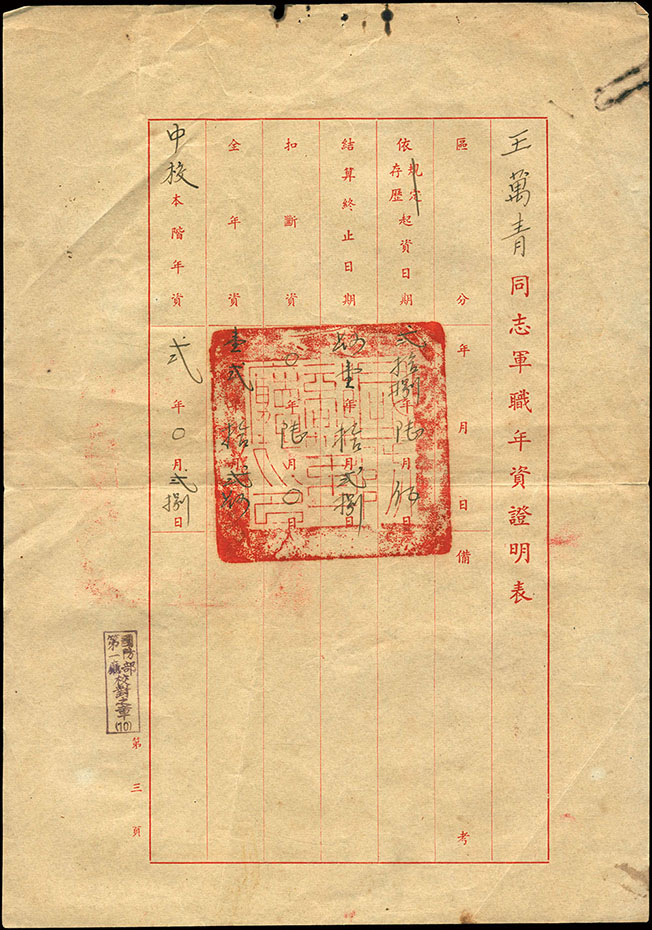 王萬青同志軍職年資證明表
區分 年月日 備考
依規定存歷起資日期 貳捌年陸月 日
結算終止日期 年拾貳月捌日
扣斷資 〇年陸月〇日
全年資 壹貳年拾月 日
中校本階年資 貳年〇月貳捌日
國防部
第一廳校對之章
(10)
第三頁